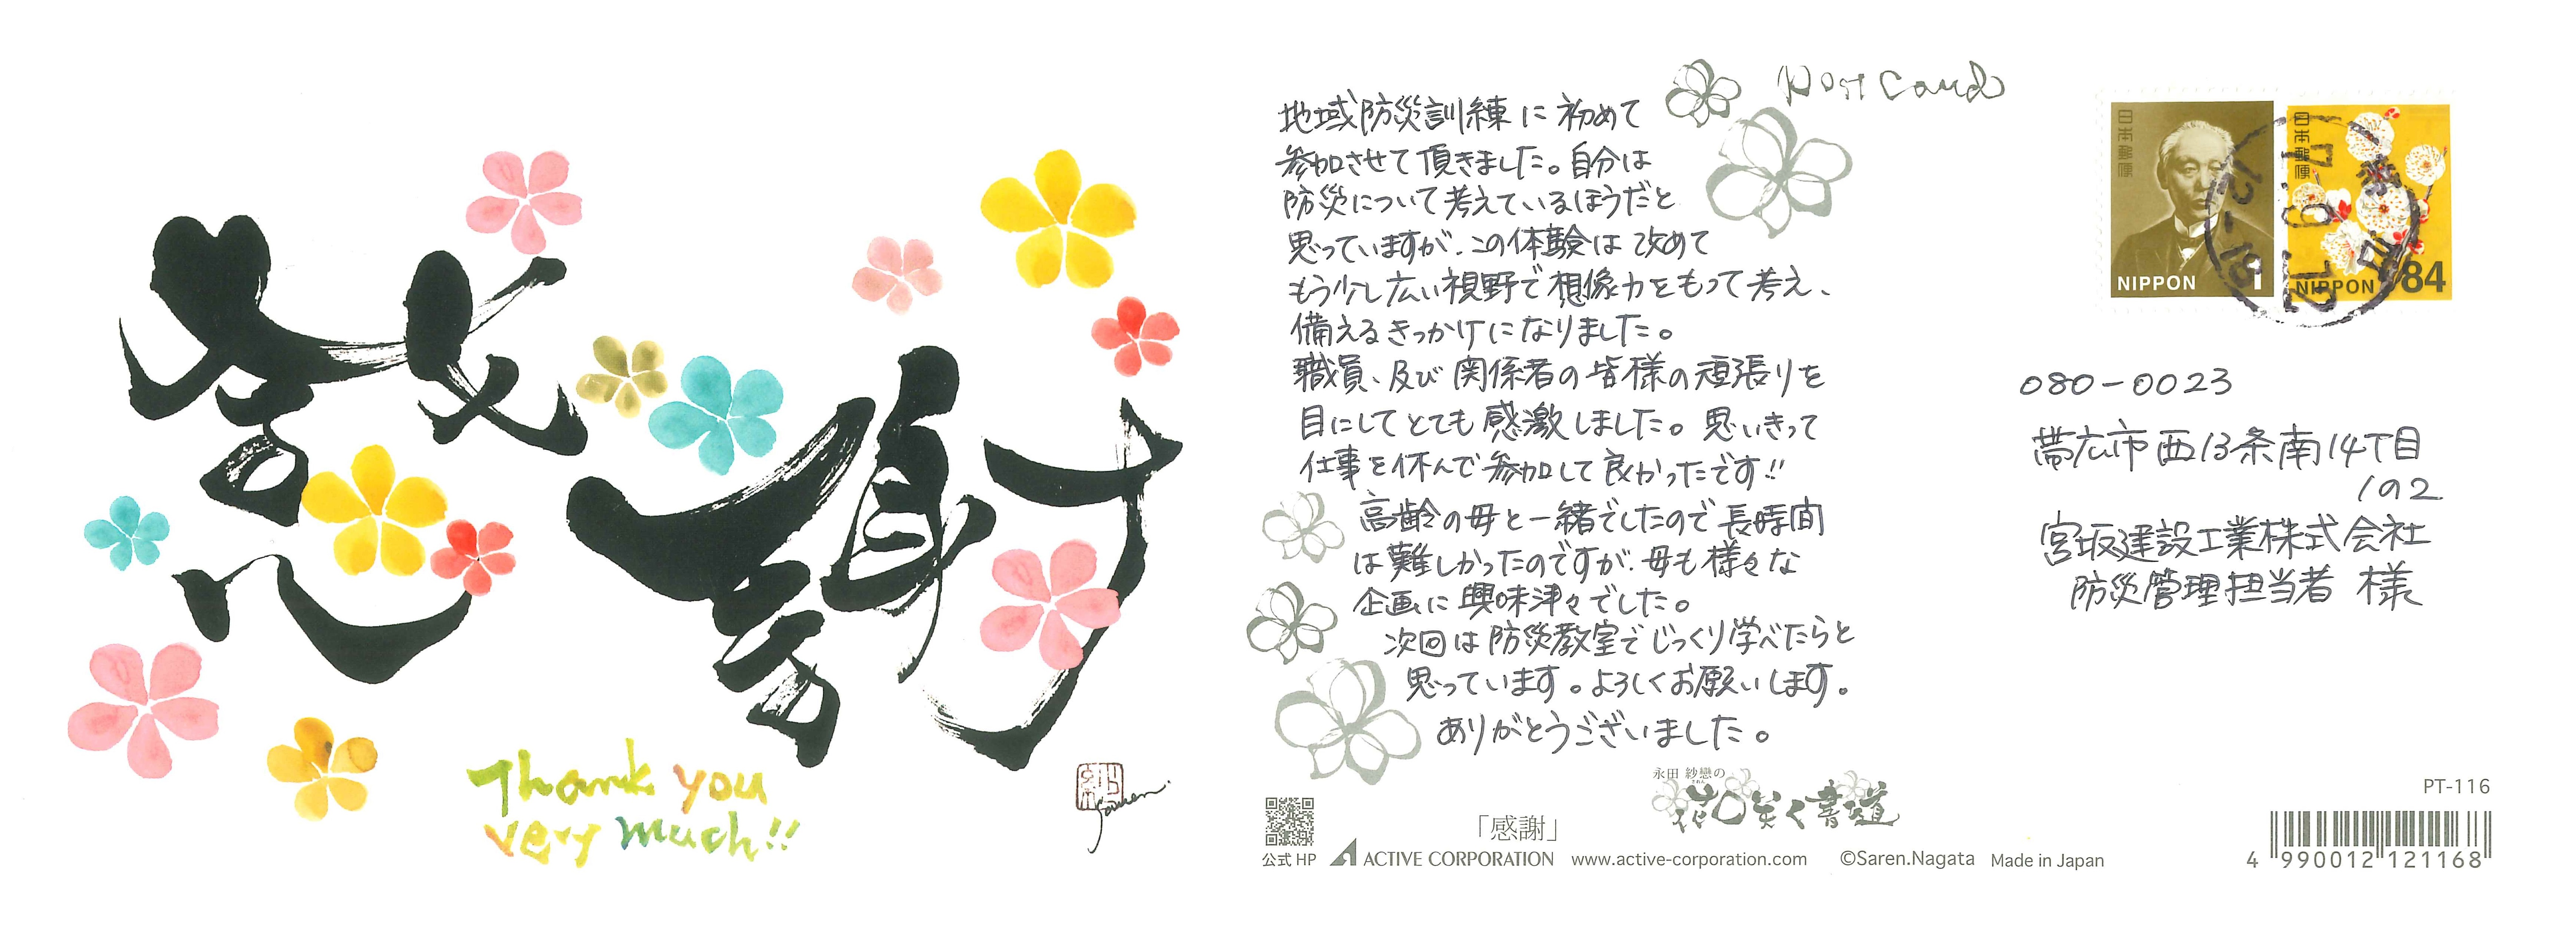 感謝
Thank you
very much!!
Saren
Post Card
地域防災訓練に初めて
参加させて頂きました。自分は
防災について考えているほうだと
思っていますが、この体験は改めて
もう少し広い視野で想像力をもって考え、
備えるきっかけになりました。
職員、及び関係者の皆様の頑張りを
目にしてとても感激しました。思いきって
仕事を休んで参加して良かったです!!
高齢の母と一緒でしたので長時間
は難しかったのですが、母も様々な
企画に興味津々でした。
次回は防災教室でじっくり学べたらと
思っています。よろしくお願いします。
ありがとうございました。
日本郵便
NIPPON 1
日本郵便
NIPPON 84
080-0023
帯広市西13条南14丁目
1の2
宮坂建設工業株式会社
防災管理担当者 様
永田 紗戀の
されん
花咲く書道
公式 HP
ACTIVE CORPORATION
「感謝」
www.active-corporation.com
©Saren.Nagata
Made in Japan
PT-116
4 990012 121168